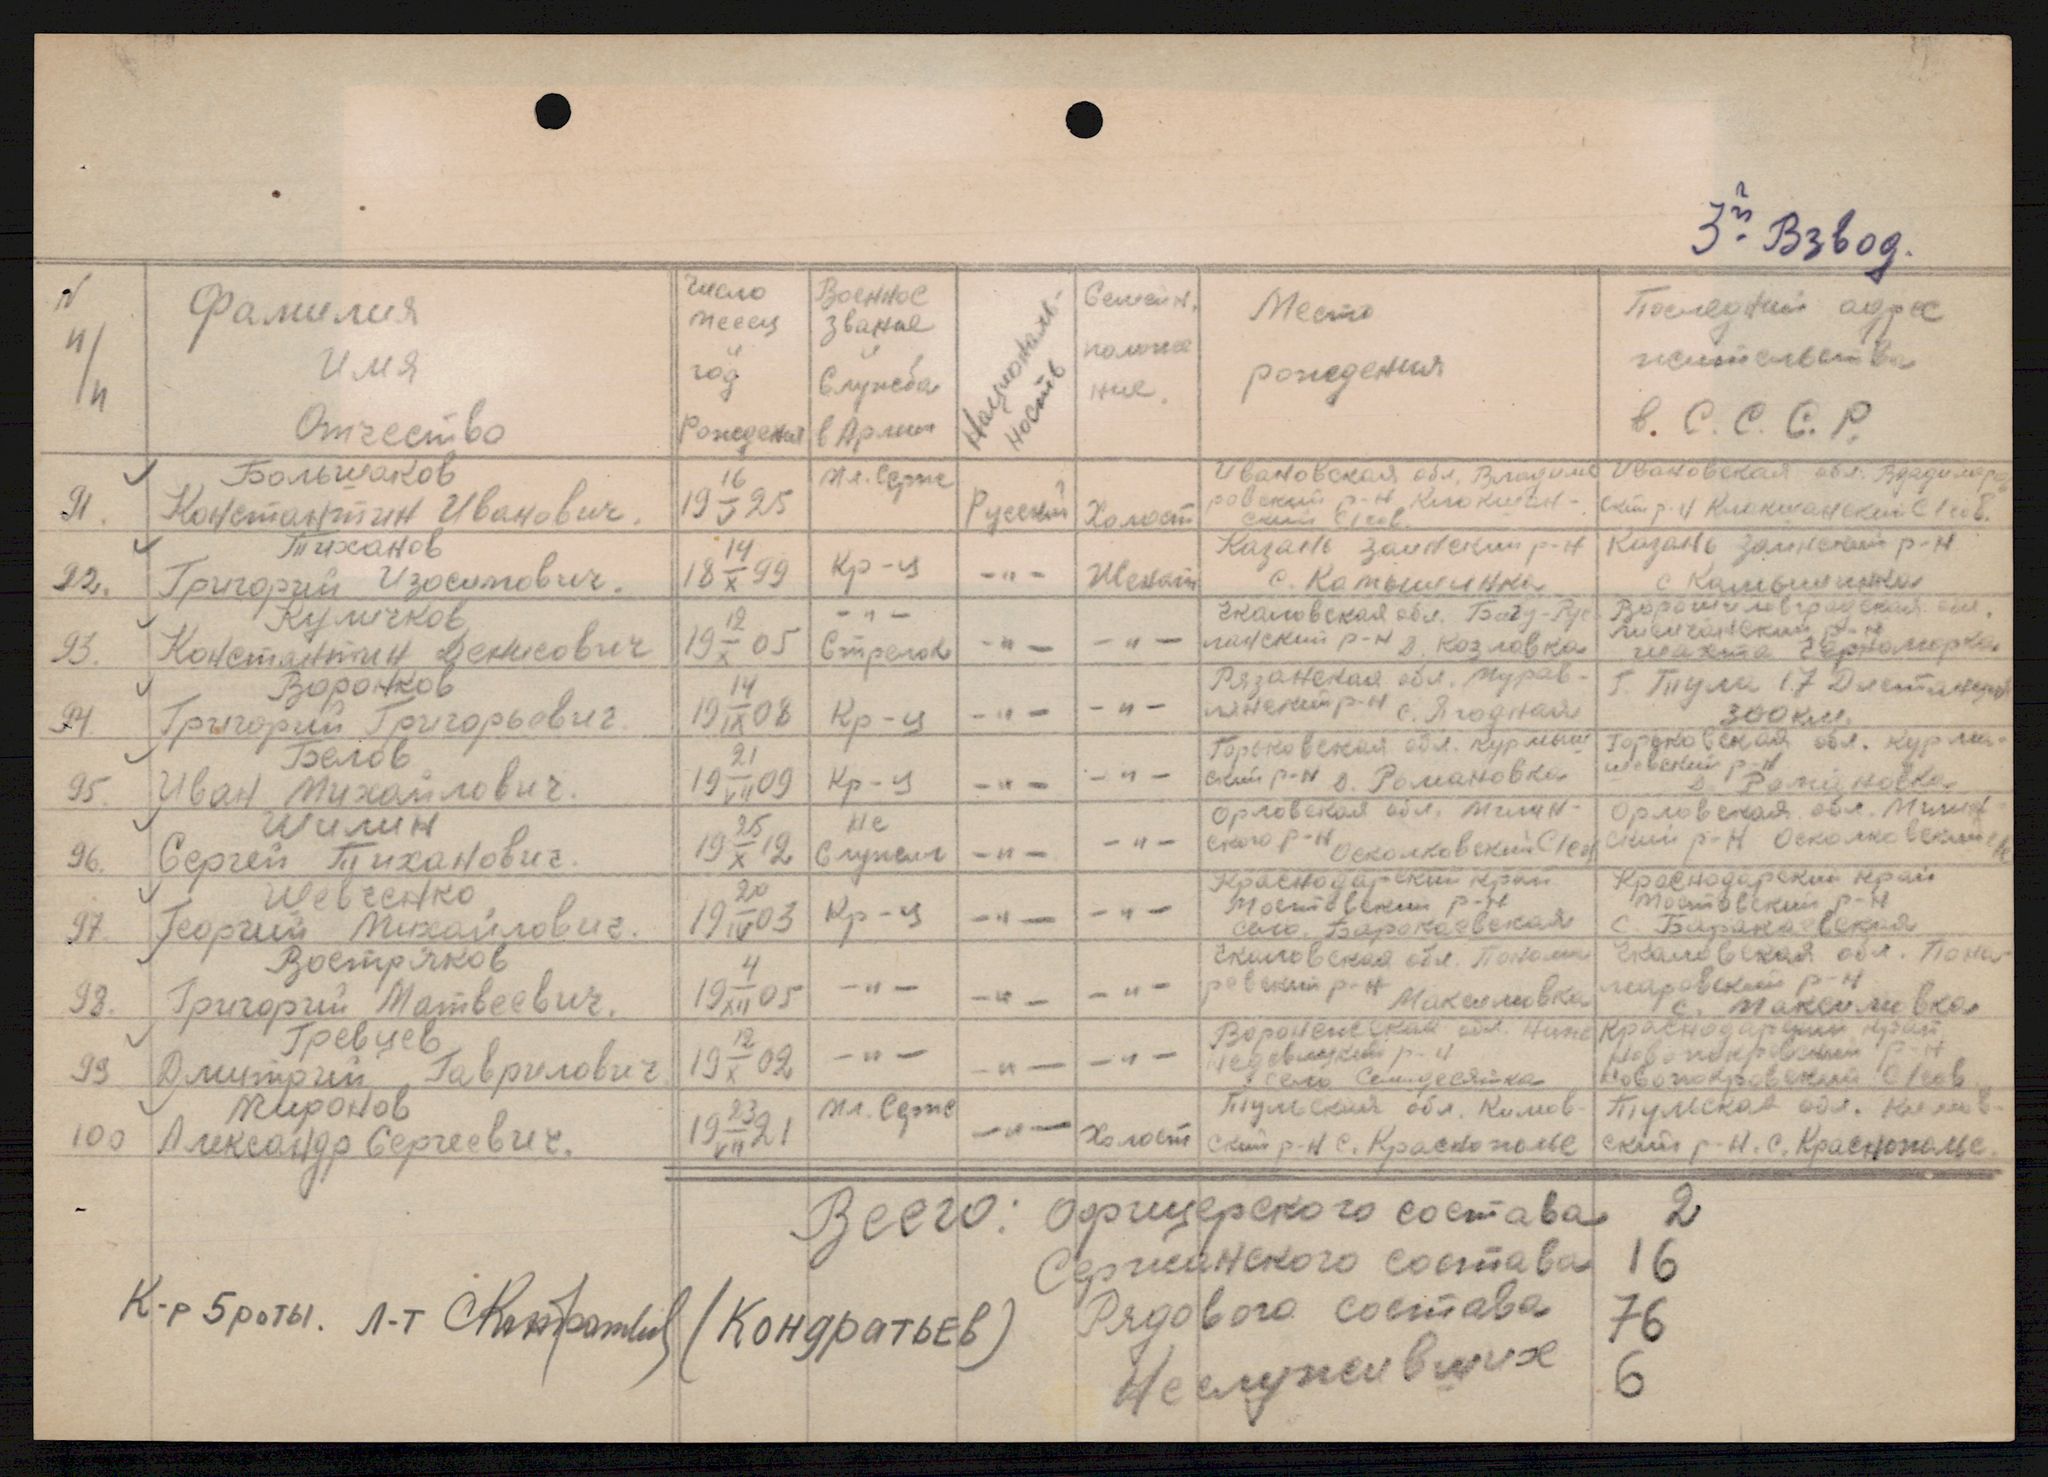 3й Взвод.
N п/п
Фамилия Имя Отчество
Число месец год Рождения
Военное звание Служба в Армии
Националь-ность
Семейн. положение.
Место рождения
Последний адрес жительства в. С.С.С.Р.
91. Большаков Константин Иванович. 19 16/V 25 Мл. Серж Русский Холост Ивановская обл. Владими ровский р-н С/сов. Ивановская обл. ский р-н С/сов.
92. Тиханов Григорий Изосимович. 18 14/X 99 Кр-ц -"- Женат Казань Заинский р-н с. Камышинка Казань Заинский р-н с Камышинка
93. Куличков Константин Денисович 19 12/X 05 -"- Стрелок -"- -"- Чкаловская обл. Бугу-Рус ланский р-н д. Козловка Ворошиловградская обл. Лисичанский р-н шахта Черноморка
94. Воронков Григорий Григорьевич 19 14/IX 08 Кр-ц -"- -"- Рязанская обл. Мурав-лянский р-н с. Ягодная г. Тула 17 300 км.
95. Белов Иван Михайлович. 19 21/VII 09 Кр-ц -"- -"- Горьковская обл. Курмыш ский р-н д. Романовка Горьковская обл. Курмы-шевский р-н д. Романовка
96. Шилин Сергей Тиханович. 19 25/X 12 Не Служил -"- -"- Орловская обл. Млин-ского р-н Осколковский С/сов Орловская обл. ский р-н Осколковский
97. Шевченко Георгий Михайлович. 19 20/IV 03 Кр-ц -"- -"- Краснодарский край Мостовский р-н село. Баракаевская Краснодарский край Мостовский р-н с. Баракаевская
98. Востряков Григорий Матвеевич. 19 4/XII 05 -"- -"- -"- Чкаловская обл. Понома ревский р-н Максимовка Чкаловская обл. Поно-маровский р-н с. Максимовка
99 Гревцев Дмитрий Гаврилович 19 12/X 02 -"- -"- -"- Воронежская обл. Ниже Недевицкий р-н село Семидесятка Краснодарский край Новопокровский р-н Новопокровский С/сов
100 Миронов Александр Сергеевич. 19 23/VII 21 Мл. Серж -"- Холост Тульская обл. Кимов-ский р-н с. Краснополье Тульская обл. Кимов-ский р-н. с. Краснополье.
Всего: Офицерского состава 2
Сержанского состава 16
К-р 5 роты. л-т (Кондратьев) Рядового состава 76
Неслуживших 6